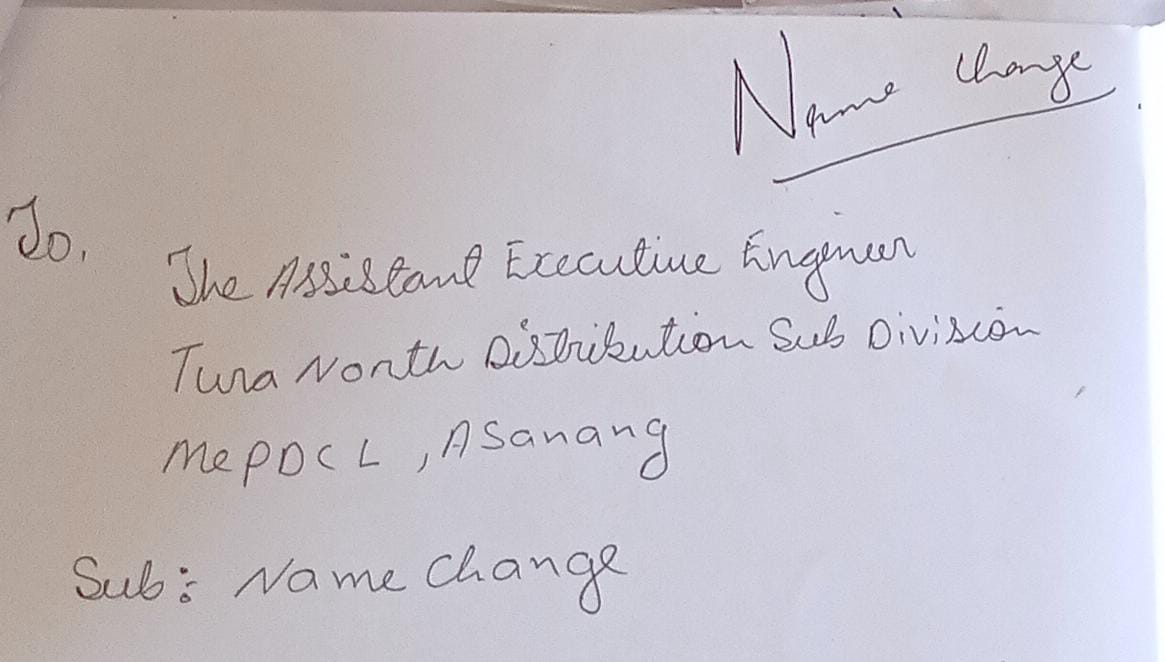 Name Change
To,
The Assistant Executive Engeneer
Tura North Distribution Sub Division
MePDCL, Asanang
Sub: Name Change